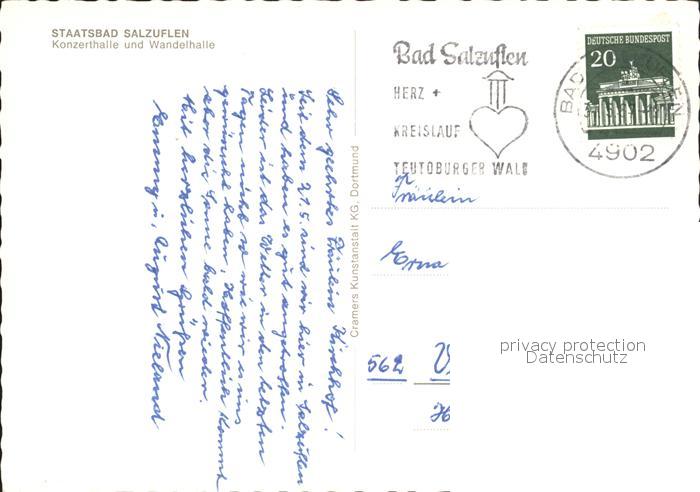 STAATSBAD SALZUFLEN
Konzerthalle und Wandelhalle
Sehr geehrtes Fräulein Kirchhof!
Seit dem 21.5. sind wir hier in Salzuflen
und haben es gut angetroffen.
Leider ist das Wetter in den letzten
Tagen nicht so wie wir es uns
gewünscht haben. Hoffentlich kommt
aber die Sonne bald wieder.
Mit herzlichen Grüßen
August
Cramers Kunstanstalt KG, Dortmund
Bad Salzuflen
HERZ +
KREISLAUF
TEUTOBURGER WALD
DEUTSCHE BUNDESPOST
20
BAD SALZUFLEN
4902
Fräulein
Erna
562 V
privacy protection
Datenschutz